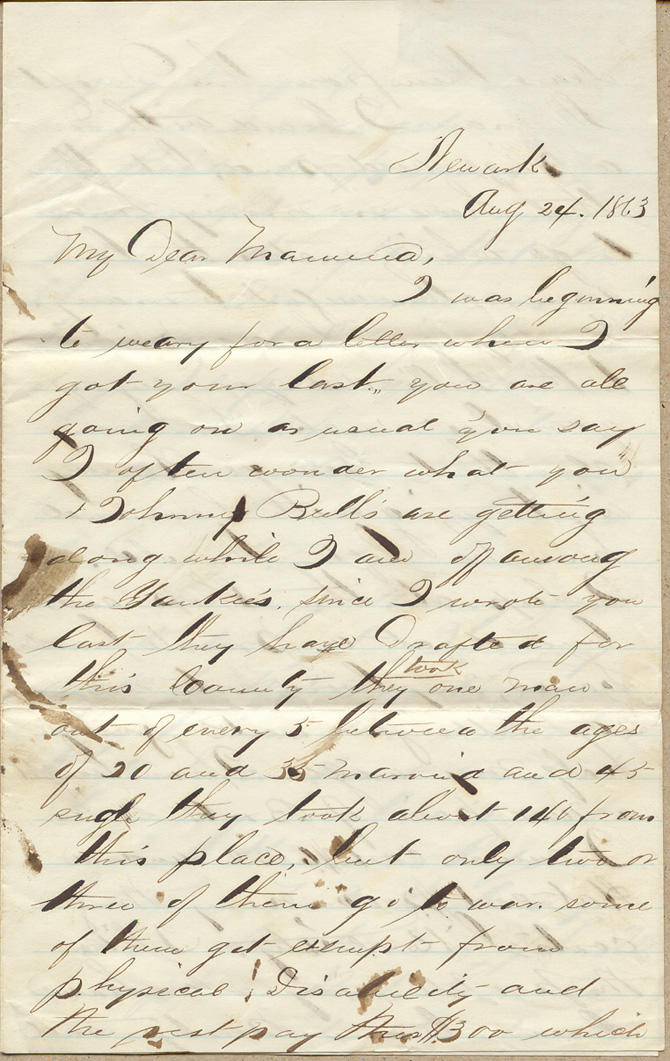 Newark
Aug 24. 1863
My Dear Mamma,
I was beginning
to weary for a letter when I
got your last, you are all
going on as usual you say
I often wonder what you
+ Johnny Bulls are getting
along while I am of among
the Yankees, since I wrote you
last they have Drafted for
this County they took one man
out of every 5 between the ages
of 20 and 35 married and 45
single they took about 140 from
this place, but only two or
three of them go to war. some
of them get exempt from
physical Disability and
the rest pay this $300 which